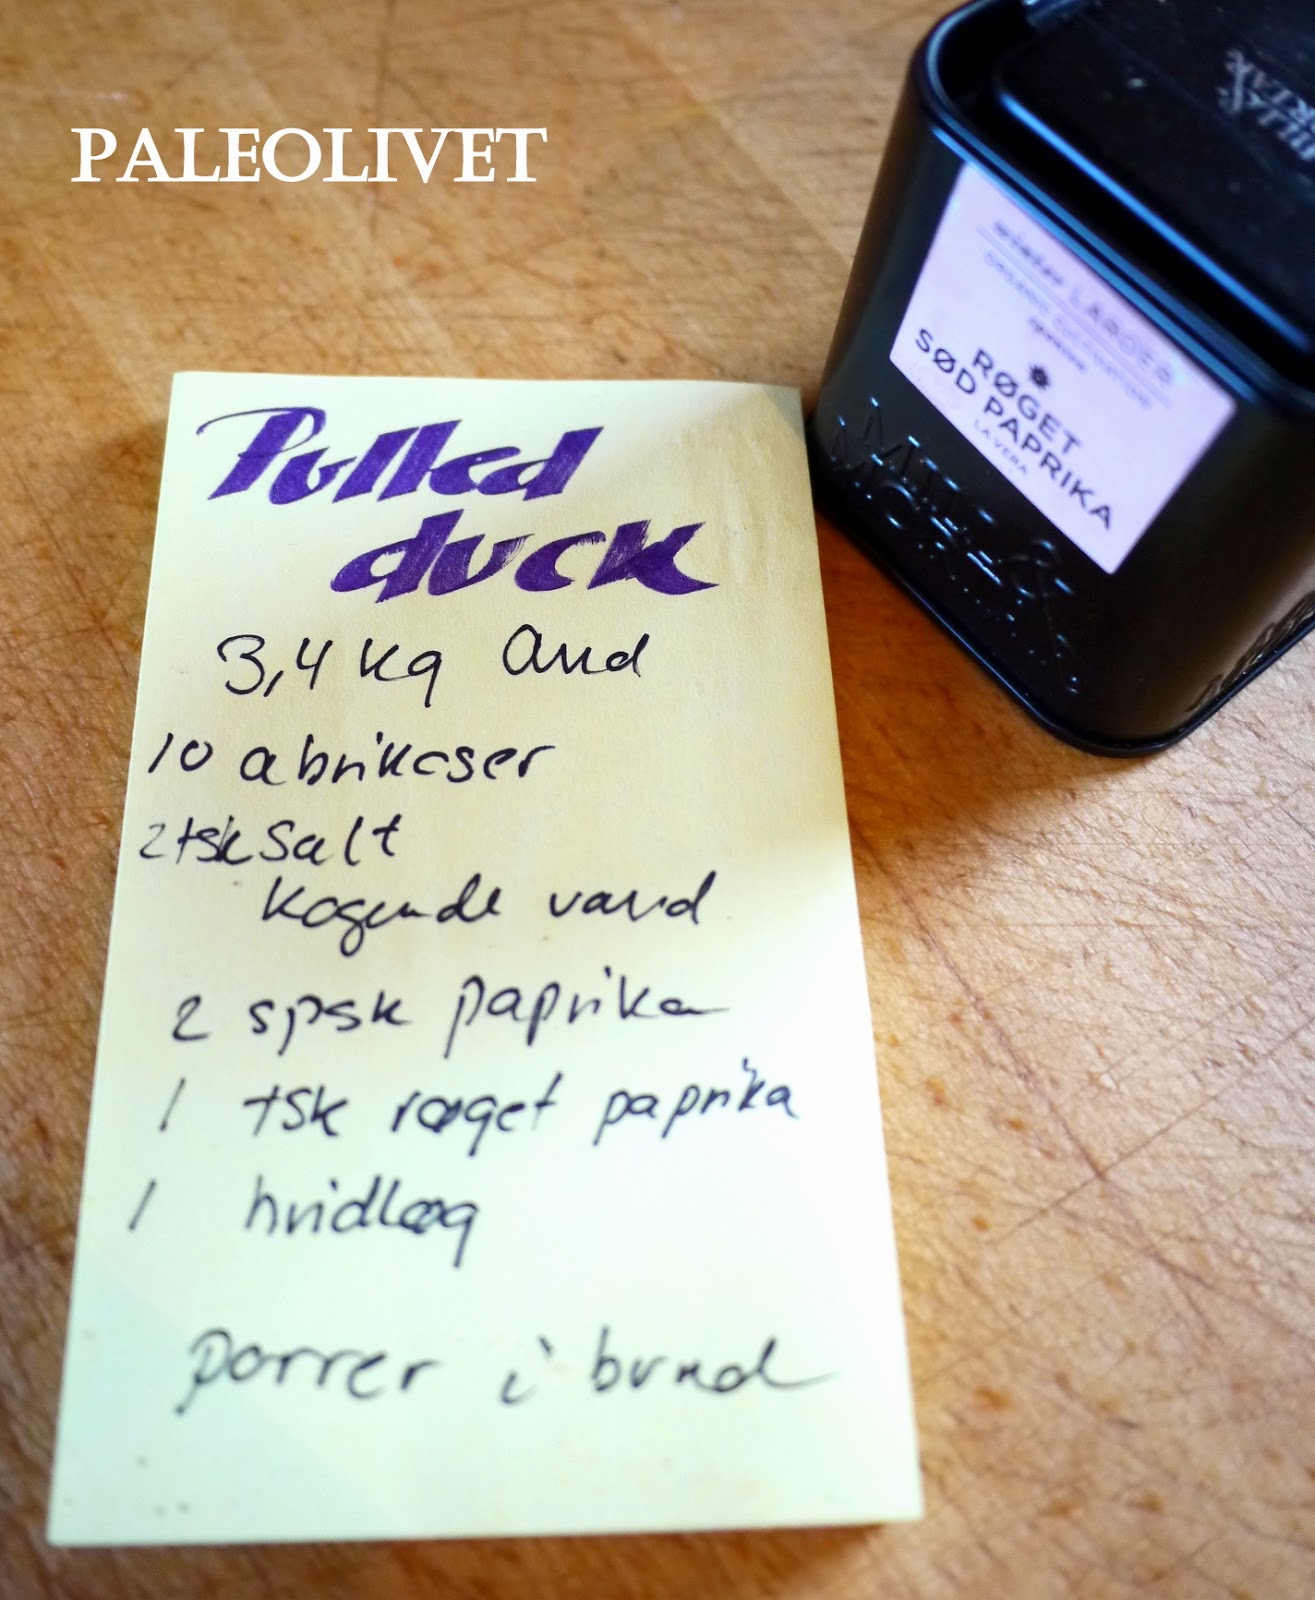 PALEOLIVET
Pulled
duck
3,4 kg And
10 abrikoser
2 tsk salt
kogende vand
2 spsk paprika
1 tsk røget paprika
1 hvidløg
porrer i bund
RØGET
SØD PAPRIKA
LA VERA
MILL &
MORTAR